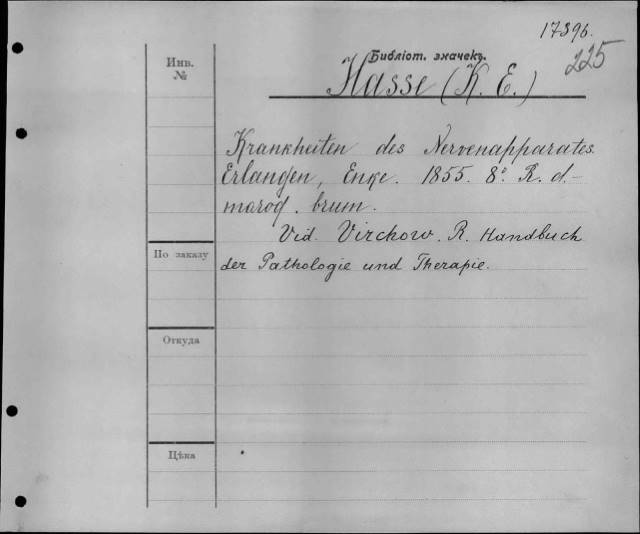 17396.
225
Инв.
№
Библіот. значекъ.
Hasse (K. E.)
Krankheiten des Nervenapparates.
Erlangen, Enke. 1855. 8º. R. d.–
maroq. brum.
Vid. Virchow. R. Handbuch
der Pathologie und Therapie.
По заказу
Откуда
Цѣна